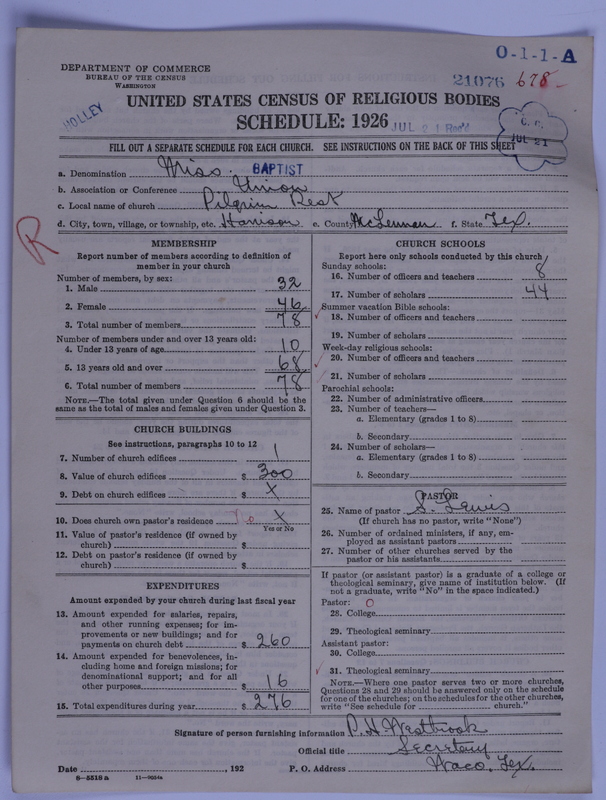 O-1-1-A
DEPARTMENT OF COMMERCE
BUREAU OF THE CENSUS
WASHINGTON
21076 678
HOLLEY
UNITED STATES CENSUS OF RELIGIOUS BODIES
SCHEDULE: 1926
JUL 21 Rec'd
C. C.
JUL 21
FILL OUT A SEPARATE SCHEDULE FOR EACH CHURCH. SEE INSTRUCTIONS ON THE BACK OF THIS SHEET
a. Denomination Miss. BAPTIST
b. Association or Conference Union
c. Local name of church Pilgrim Rest
d. City, town, village, or township, etc. Harrison e. County McLennan f. State Tex.
R
MEMBERSHIP
Report number of members according to definition of member in your church
Number of members, by sex:
1. Male 32
2. Female 46
3. Total number of members 78
Number of members under and over 13 years old:
4. Under 13 years of age 10
5. 13 years old and over 68
6. Total number of members 78
NOTE.—The total given under Question 6 should be the
same as the total of males and females given under Question 3.
CHURCH BUILDINGS
See instructions, paragraphs 10 to 12
7. Number of church edifices 1
8. Value of church edifices $ 300
9. Debt on church edifices $ X
10. Does church own pastor's residence No X
Yes or No
11. Value of pastor's residence (if owned by
church) $
12. Debt on pastor's residence (if owned by
church) $
EXPENDITURES
Amount expended by your church during last fiscal year
13. Amount expended for salaries, repairs,
and other running expenses; for im-
provements or new buildings; and for
payments on church debt $ 260
14. Amount expended for benevolences, in-
cluding home and foreign missions; for
denominational support; and for all
other purposes $ 16
15. Total expenditures during year $ 276
CHURCH SCHOOLS
Report here only schools conducted by this church
Sunday schools:
16. Number of officers and teachers 8
17. Number of scholars 44
Summer vacation Bible schools:
18. Number of officers and teachers
19. Number of scholars
Week-day religious schools:
20. Number of officers and teachers
21. Number of scholars
Parochial schools:
22. Number of administrative officers
23. Number of teachers—
a. Elementary (grades 1 to 8)
b. Secondary
24. Number of scholars—
a. Elementary (grades 1 to 8)
b. Secondary
PASTOR
25. Name of pastor S. Lewis
(If church has no pastor, write "None")
26. Number of ordained ministers, if any, em-
ployed as assistant pastors
27. Number of other churches served by the
pastor or his assistants
If pastor (or assistant pastor) is a graduate of a college or
theological seminary, give name of institution below. (If
not a graduate, write "No" in the space indicated.)
Pastor: O
28. College
29. Theological seminary
Assistant pastor:
30. College
31. Theological seminary
NOTE.—Where one pastor serves two or more churches,
Questions 28 and 29 should be answered only on the schedule
for one of the churches; on the schedules for the other churches,
write "See schedule for church."
Signature of person furnishing information P. H. Westbrook
Official title Secretary
Date , 192 P. O. Address Waco, Tex.
8—5518 a